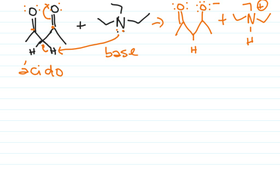 :O: :O: :O: :O:⁻
+ N → + N ⊕
H H H H
ácido base